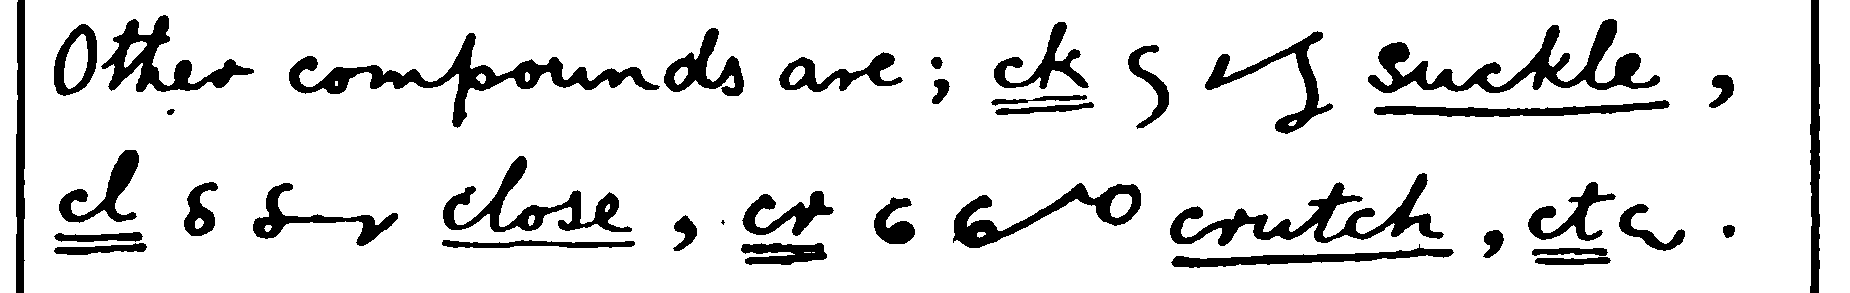 Other compounds are; ck suckle,
cl close, cr crutch, ct